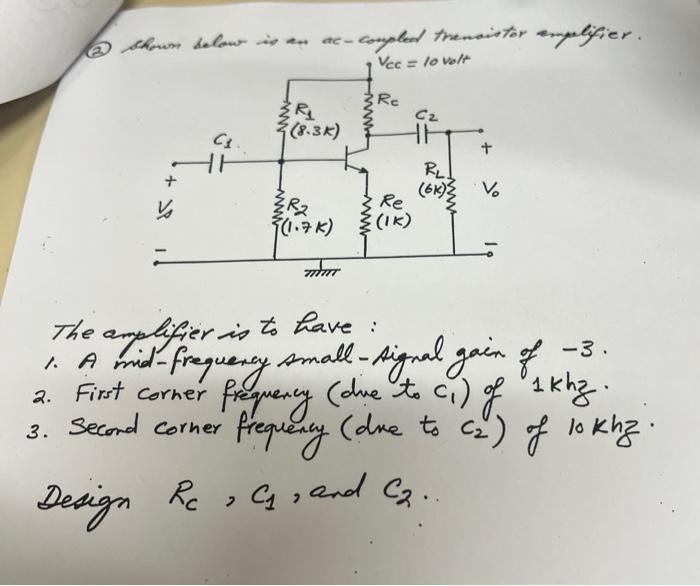 ② Shown below is an ac-coupled transistor amplifier.
Vcc = 10 volt
R1
(8.3K)
Rc
C2
C1
+
Vs
-
R2
(1.7K)
Re
(1K)
RL
(6K)
+
Vo
-
The amplifier is to have :
1. A mid-frequency small-signal gain of -3.
2. First corner frequency (due to C1) of 1 khz.
3. Second corner frequency (due to C2) of 10 khz.
Design Rc, C1, and C2..